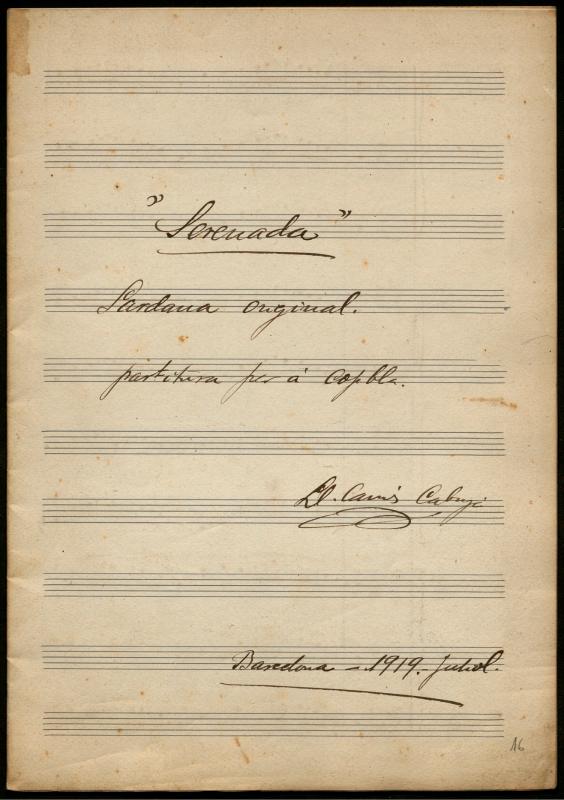 "Serenada"
Sardana original.
partitura per á copbla.
Ll. Camós Cabruja
Barcelona - 1919. - juliol.
16